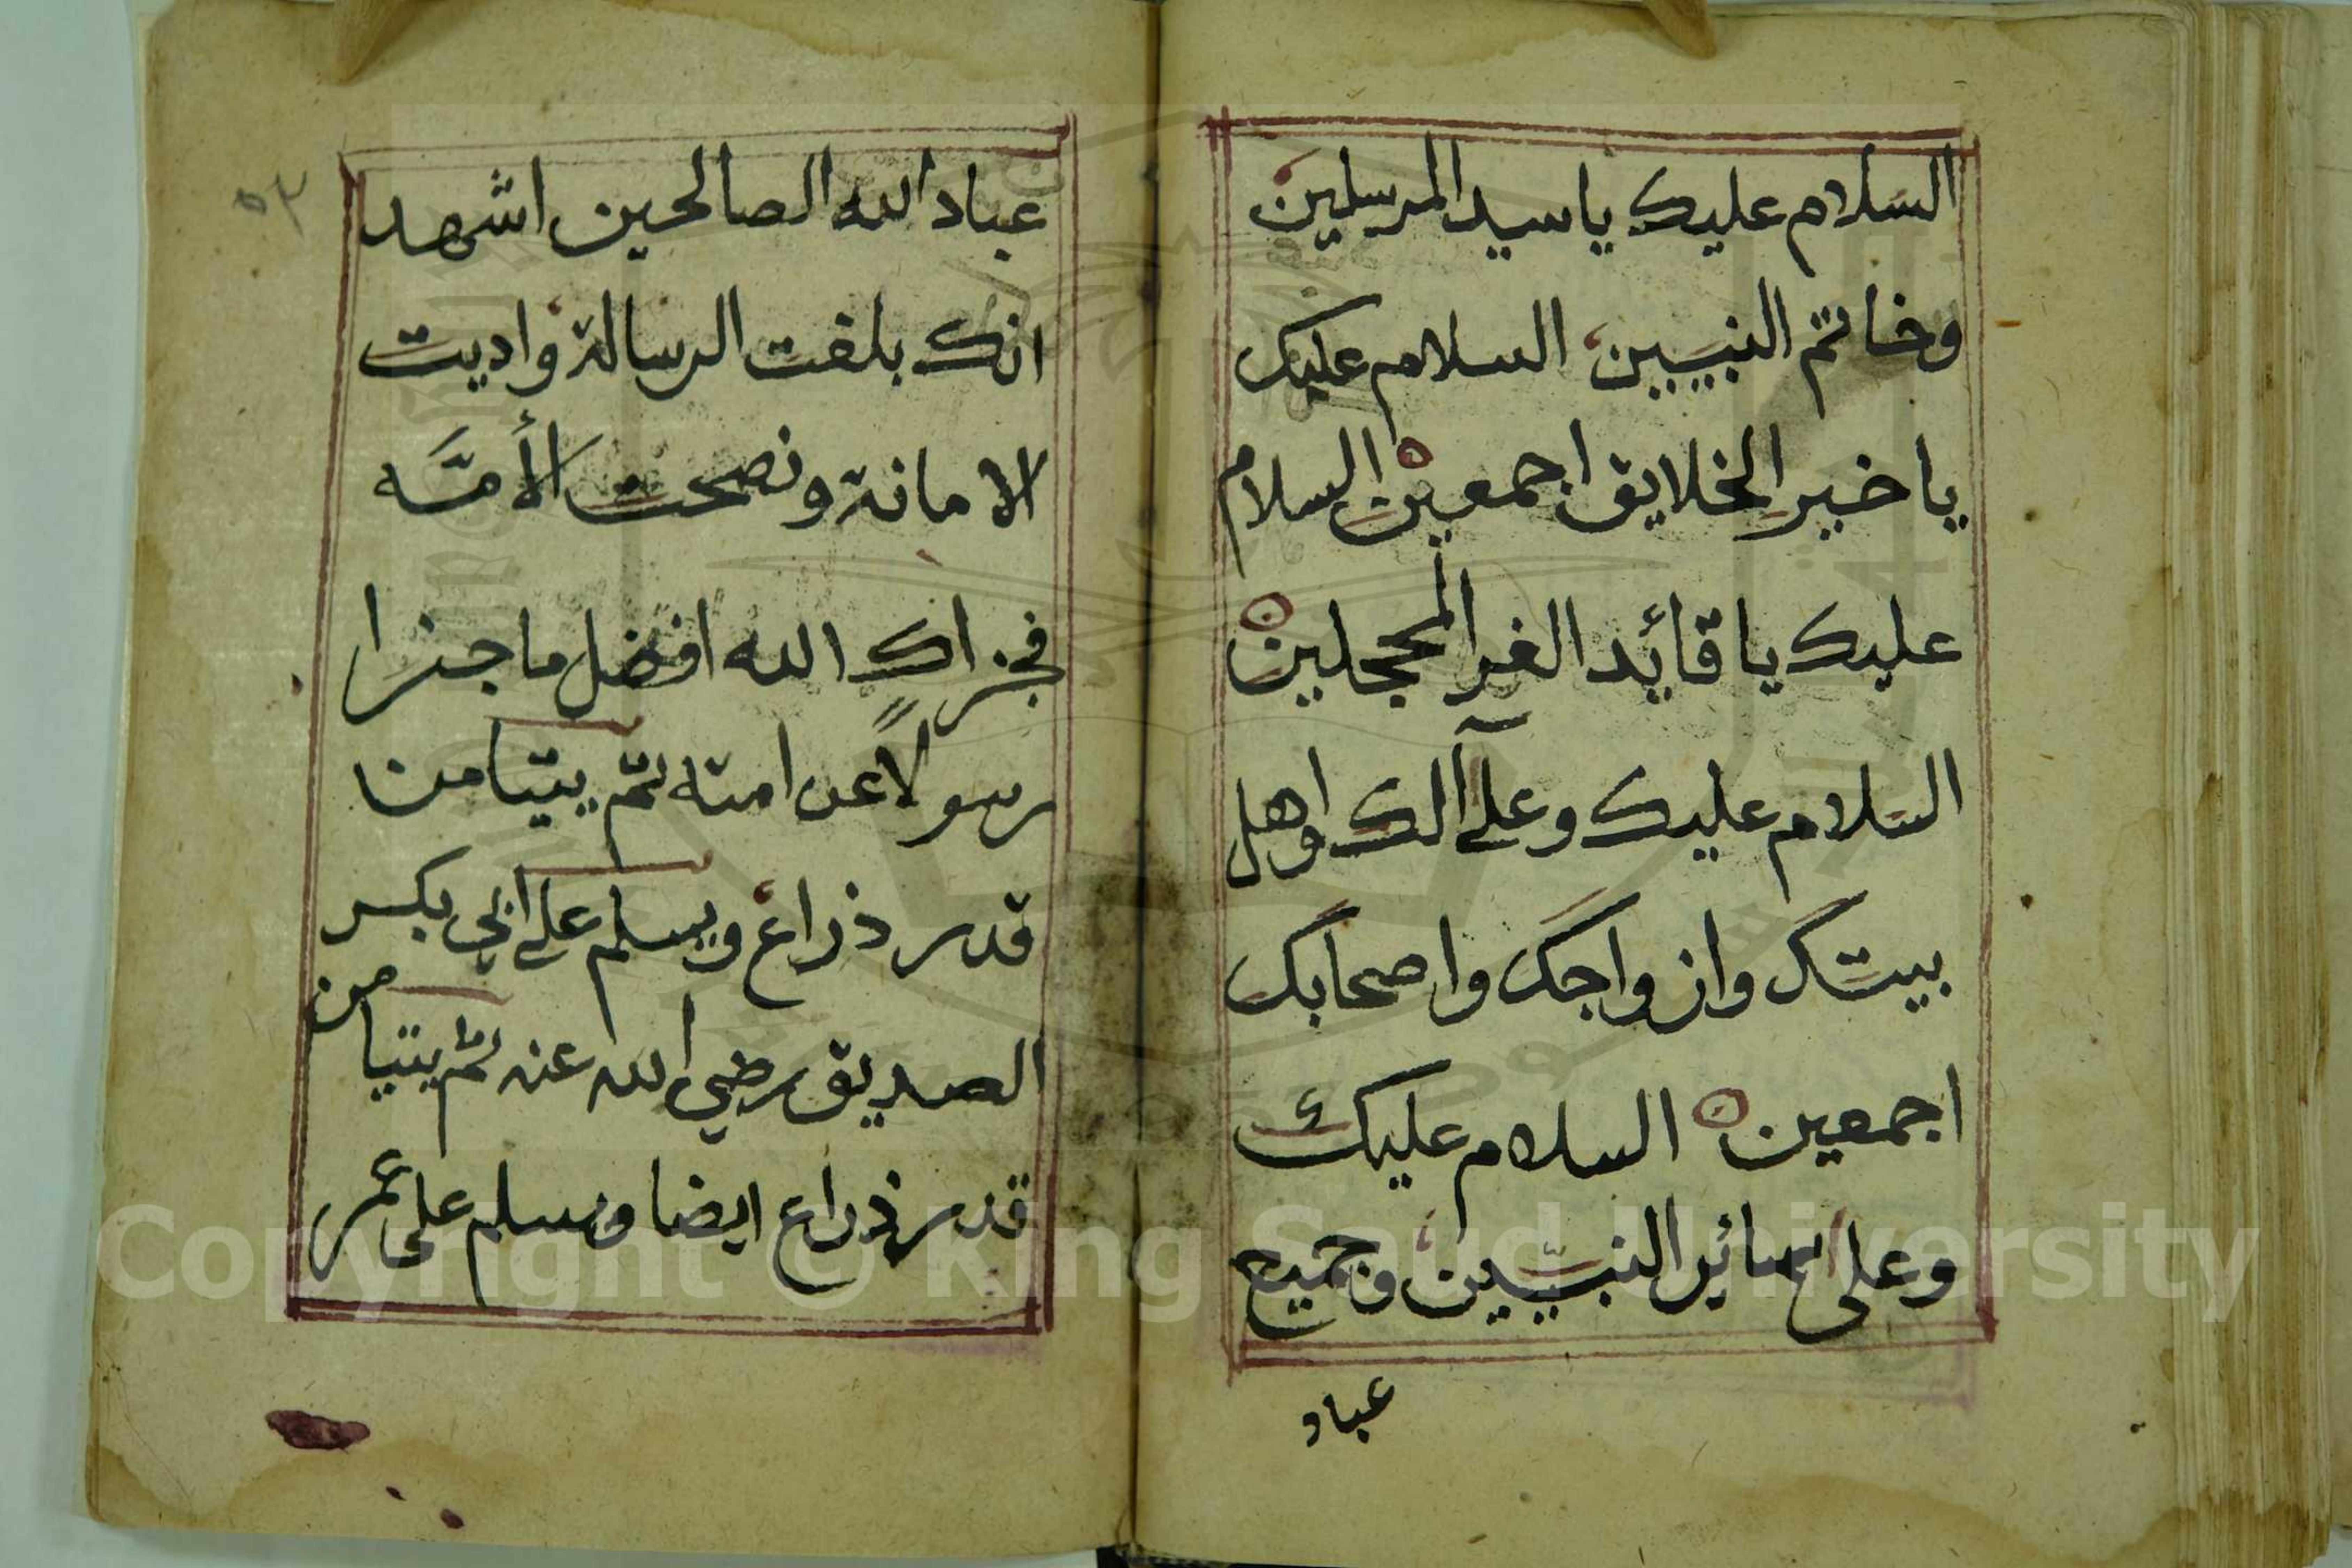 السلام عليك يا سيد المرسلين
وخاتم النبيين السلام عليك
يا خير الخلايق اجمعين السلام
عليك يا قائد الغر المحجلين
السلام عليك وعلى آلك واهل
بيتك وازواجك واصحابك
اجمعين السلام عليك
وعلى سائر النبيين وجميع
عباد
٥٢
عباد الله الصالحين اشهد
انك بلغت الرسالة واديت
الامانة ونصحت الأمّه
فجزاك الله افضل ما جزا
رسولاً عن امته ثم يتيامن
قدر ذراع ويسلم على ابي بكر
الصديق رضي الله عنه ثم يتيامن
قدر ذراع ايضا ويسلم على عمر
Copyright © King Saud University